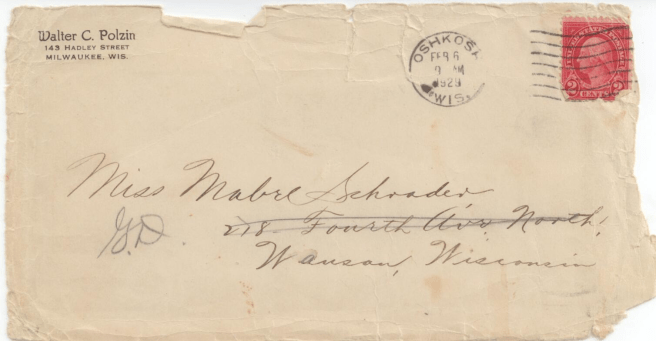 Walter C. Polzin
143 HADLEY STREET
MILWAUKEE, WIS.
OSHKOSH
FEB 6
AM
1929
WIS.
2 2
Miss Mabel Schrader,
218 Fourth Ave North,
Wausau, Wisconsin
G.D